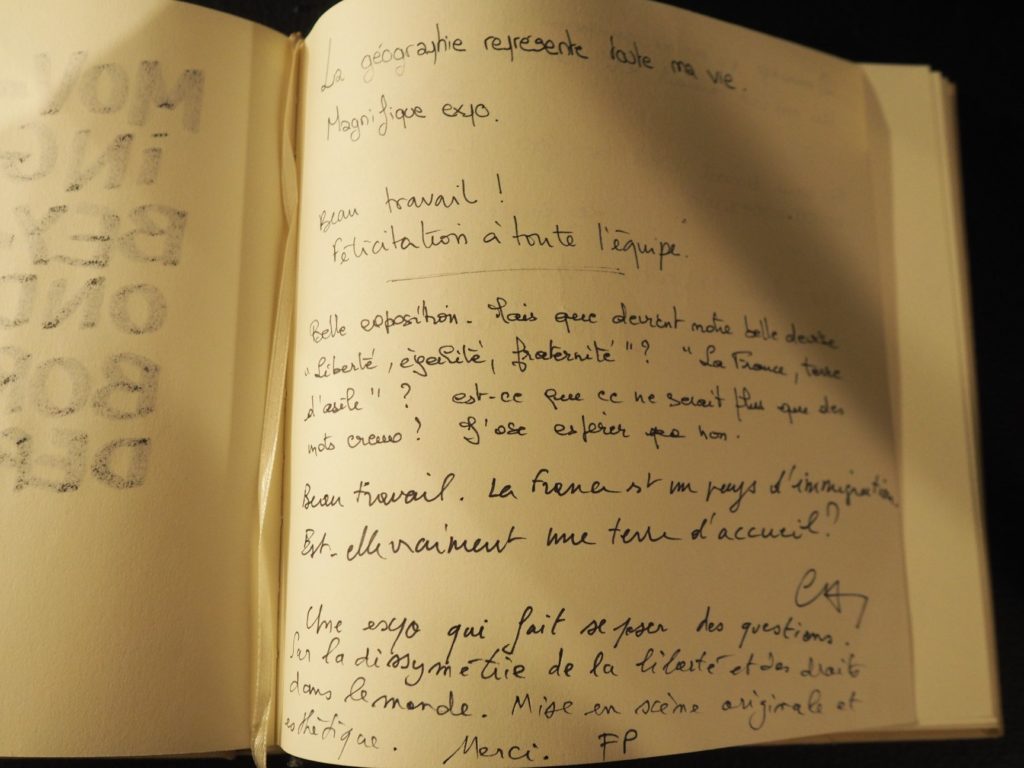 MOV
ING
BEY
OND
BOR
DER
La géographie représente toute ma vie.
Magnifique expo.
Beau travail !
Félicitation à toute l'équipe.
Belle exposition. Mais que devient notre belle devise
"Liberté, égalité, fraternité" ? "La France, terre
d'asile" ? est-ce que ce ne serait plus que des
mots creux ? J'ose espérer que non.
Beau travail. La France est un pays d'immigration
Est-elle vraiment une terre d'accueil ?
Une expo qui fait se poser des questions.
Sur la dissymétrie de la liberté et des droits
dans le monde. Mise en scène originale et
esthétique. Merci. FP